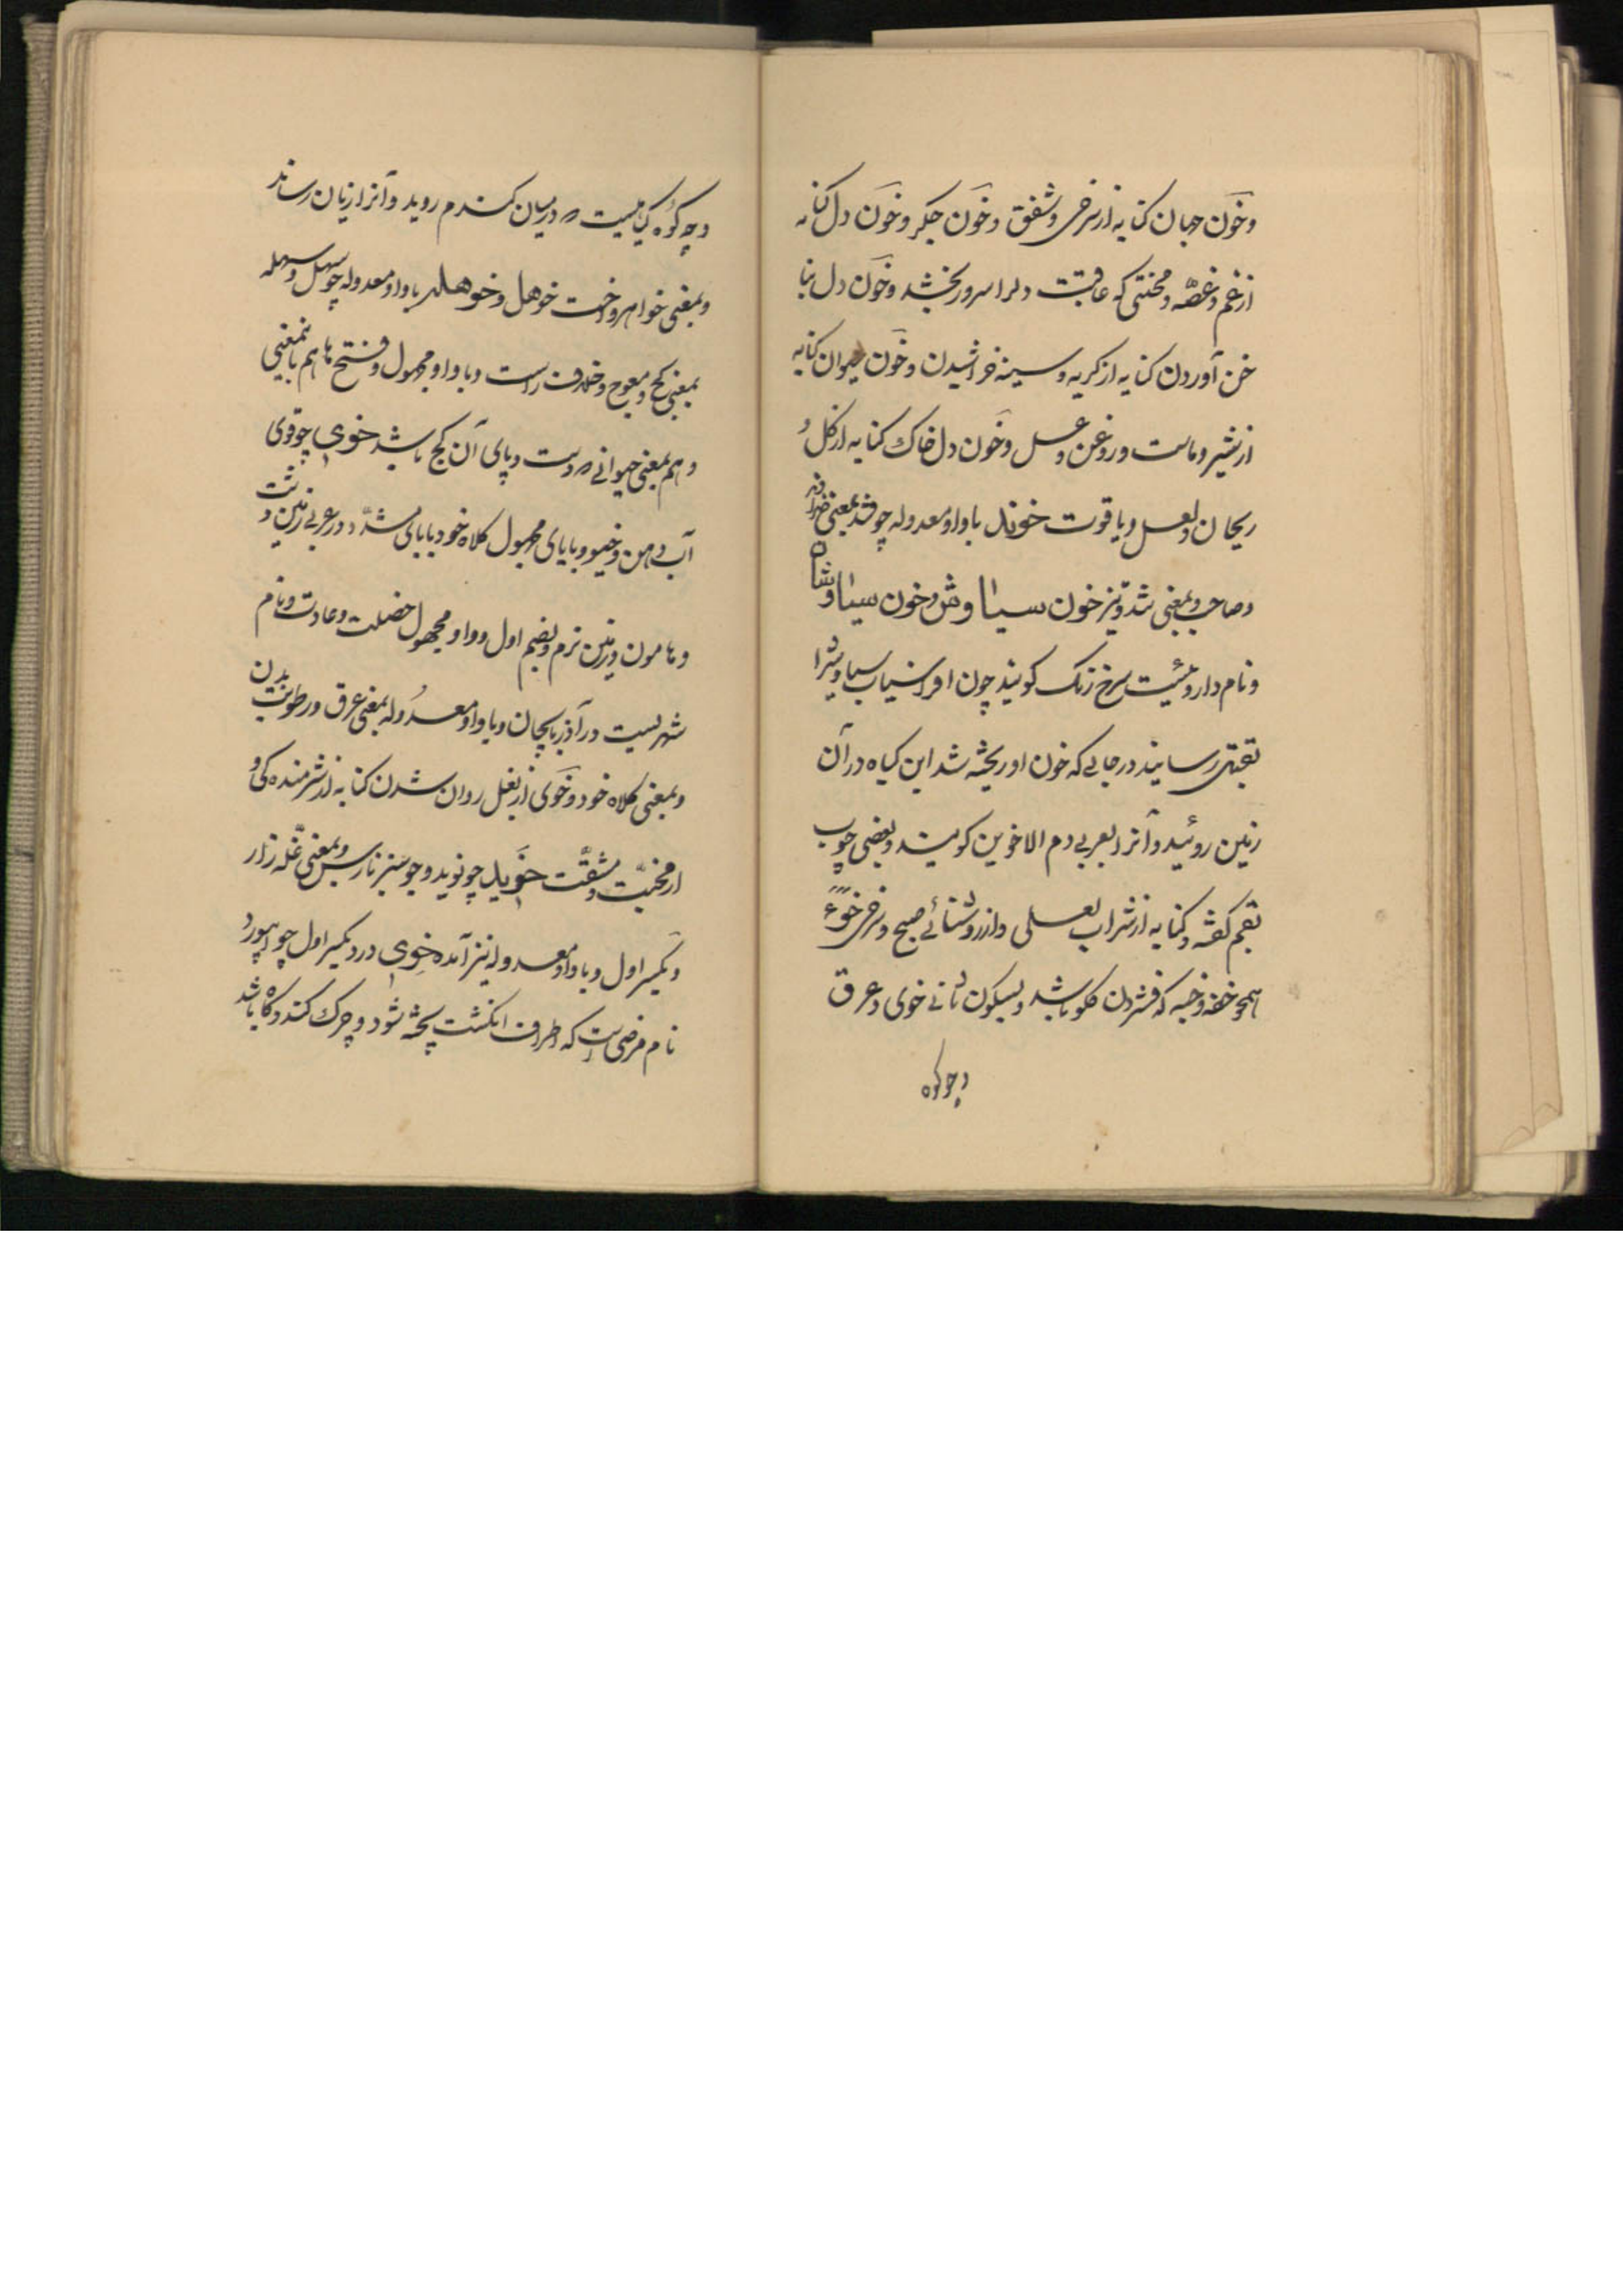 وخون جهان کنایه از سرخی و شفق وخون جکر وخون دل کنایه
از غم و غصّه و محنتی که عاقبت دلرا سرور بخشد وخون دل بنا
خن آوردن کنایه از کریه و سینه خراشیدن وخون حیوان کنایه
از شیر و ماست و روغن و عسل وخون دل خاک کنایه از کل و
ریحان و لعل و یاقوت خوند باواو معدوله چو قند بمعنی خداوند
وصاحب و بمعنی تند و تیز خون سیاوش وخون سیاوشان
ونام داروئیست سرخ رنک کویند چون افراسیاب سیاوش را
بقتل رسانید در جائی که خون او ریخته شد این کیاه در آن
زمین روئید و آنرا بعربی دم الاخوین کویند و بعضی چوب
بقم کفته و کنایه از شراب لعلی و از روشنائی صبح و سرخی خوه
همچو خفه وخبه که فشردن کلو باشد و بسکون ثانی خوی و عرق
وچو کوه
وچو کوه کیاهیست که در میان کندم روید و آنرا زیان رساند
و بمعنی خواهر و اخت خوهل و خوهله باواو معدوله چو سهل و سهله
بمعنی کج و معوج و خلاف راست و باواو مجهول و فتح ها هم باینمعنی
و هم بمعنی حیوانی که دست و پای آن کج باشد خوی چو قوی
آب دهن و خیو و بایای مجهول کلاه خود بایای مشدّد در عربی زمین پست
و هامون و زمین نرم و بضم اول و واو مجهول خصلت و عادت و نام
شهریست در آذربایجان و باواو معدوله بمعنی عرق و رطوبت بدن
و بمعنی کلاه خود وخوی از بغل روان شدن کنایه از شرمنده کی و
از محنت و مشقّت خوید چو نوید وجو سبز نارس و بمعنی غله زار
و بکسر اول و باواو معدوله نیز آمده خوی درد بکسر اول چو
نام مرضیست که اطراف انکشت پخته شود و چرک کند و کاه باشد